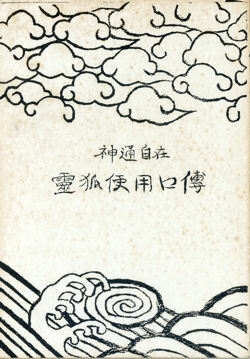 神通自在
靈狐使用口傳